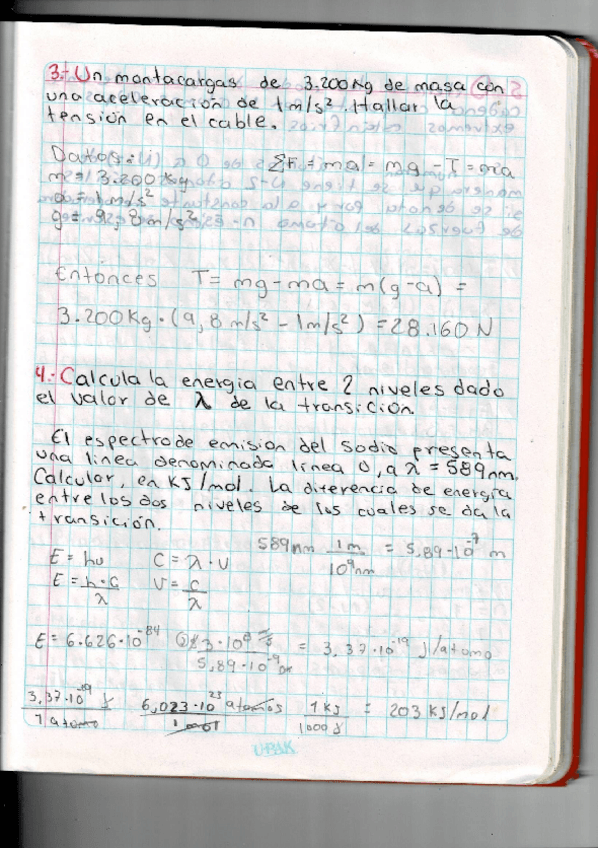 3.- Un montacargas de 3.200Kg de masa con
una aceleración de 1m/s². Hallar la
tensión en el cable.
Datos: ΣF = ma = mg - T = ma
m = 3.200 Kg
a = 1 m/s²
g = 9,8 m/s²
Entonces T = mg - ma = m(g-a) =
3.200Kg · (9,8 m/s² - 1m/s²) = 28.160 N
4.- Calcula la energia entre 2 niveles dado
el valor de λ de la transición
El espectro de emisión del sodio presenta
una linea denominada línea D, a λ = 589nm.
Calcular, en KJ/mol. La diferencia de energía
entre los dos niveles de los cuales se da la
transición.
589nm 1m / 10⁹nm = 5,89·10⁻⁷ m
E = hυ C = λ·υ
E = h·c / λ υ = c / λ
E = 6.626·10⁻³⁴ 3·10⁸ / 5,89·10 = 3,37·10⁻¹⁹ J/atomo
3,37·10⁻¹⁹ J / 1 atomo 6,023·10²³ atomos / 1 mol 1 KJ / 1000 J = 203 KJ/mol